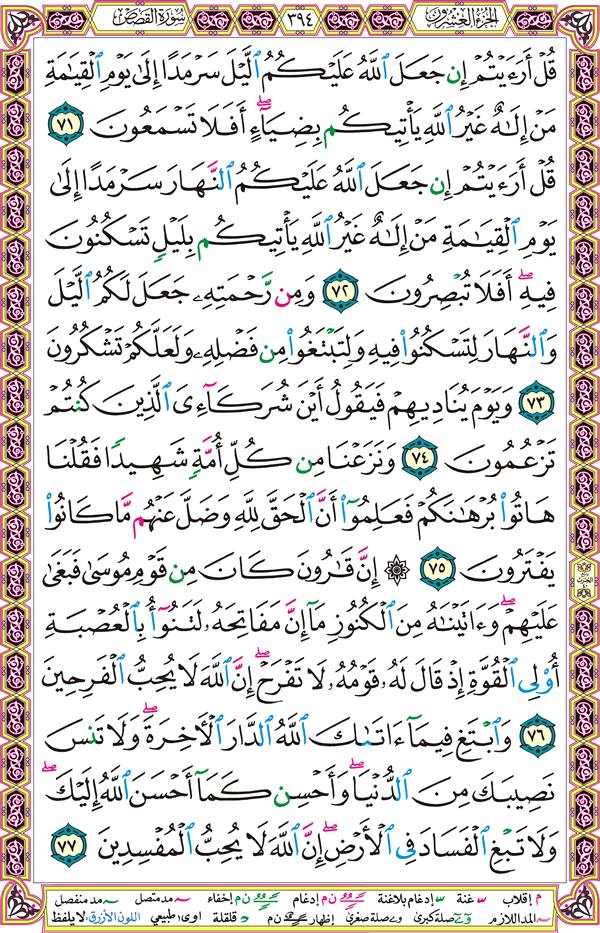 سورة القصص ٣٩٤ الجزء العشرون
قُلْ أَرَءَيْتُمْ إِن جَعَلَ ٱللَّهُ عَلَيْكُمُ ٱلَّيْلَ سَرْمَدًا إِلَىٰ يَوْمِ ٱلْقِيَٰمَةِ
مَنْ إِلَٰهٌ غَيْرُ ٱللَّهِ يَأْتِيكُم بِضِيَآءٍ ۖ أَفَلَا تَسْمَعُونَ ٧١
قُلْ أَرَءَيْتُمْ إِن جَعَلَ ٱللَّهُ عَلَيْكُمُ ٱلنَّهَارَ سَرْمَدًا إِلَىٰ
يَوْمِ ٱلْقِيَٰمَةِ مَنْ إِلَٰهٌ غَيْرُ ٱللَّهِ يَأْتِيكُم بِلَيْلٍ تَسْكُنُونَ
فِيهِ ۖ أَفَلَا تُبْصِرُونَ ٧٢ وَمِن رَّحْمَتِهِۦ جَعَلَ لَكُمُ ٱلَّيْلَ
وَٱلنَّهَارَ لِتَسْكُنُوا۟ فِيهِ وَلِتَبْتَغُوا۟ مِن فَضْلِهِۦ وَلَعَلَّكُمْ تَشْكُرُونَ
٧٣ وَيَوْمَ يُنَادِيهِمْ فَيَقُولُ أَيْنَ شُرَكَآءِىَ ٱلَّذِينَ كُنتُمْ
تَزْعُمُونَ ٧٤ وَنَزَعْنَا مِن كُلِّ أُمَّةٍ شَهِيدًا فَقُلْنَا
هَاتُوا۟ بُرْهَٰنَكُمْ فَعَلِمُوٓا۟ أَنَّ ٱلْحَقَّ لِلَّهِ وَضَلَّ عَنْهُم مَّا كَانُوا۟
يَفْتَرُونَ ٧٥ ۞ إِنَّ قَٰرُونَ كَانَ مِن قَوْمِ مُوسَىٰ فَبَغَىٰ
عَلَيْهِمْ ۖ وَءَاتَيْنَٰهُ مِنَ ٱلْكُنُوزِ مَآ إِنَّ مَفَاتِحَهُۥ لَتَنُوٓأُ بِٱلْعُصْبَةِ
أُو۟لِى ٱلْقُوَّةِ إِذْ قَالَ لَهُۥ قَوْمُهُۥ لَا تَفْرَحْ ۖ إِنَّ ٱللَّهَ لَا يُحِبُّ ٱلْفَرِحِينَ
٧٦ وَٱبْتَغِ فِيمَآ ءَاتَىٰكَ ٱللَّهُ ٱلدَّارَ ٱلْءَاخِرَةَ ۖ وَلَا تَنسَ
نَصِيبَكَ مِنَ ٱلدُّنْيَا ۖ وَأَحْسِن كَمَآ أَحْسَنَ ٱللَّهُ إِلَيْكَ ۖ
وَلَا تَبْغِ ٱلْفَسَادَ فِى ٱلْأَرْضِ ۖ إِنَّ ٱللَّهَ لَا يُحِبُّ ٱلْمُفْسِدِينَ ٧٧
م إقلاب غنة إدغام بلاغنة ن م إدغام ن م إخفاء مد متصل مد منفصل
المد اللازم صلة كبرى صلة صغرى إظهار ن م قلقلة اوى طبيعي اللون الأزرق لا يلفظ